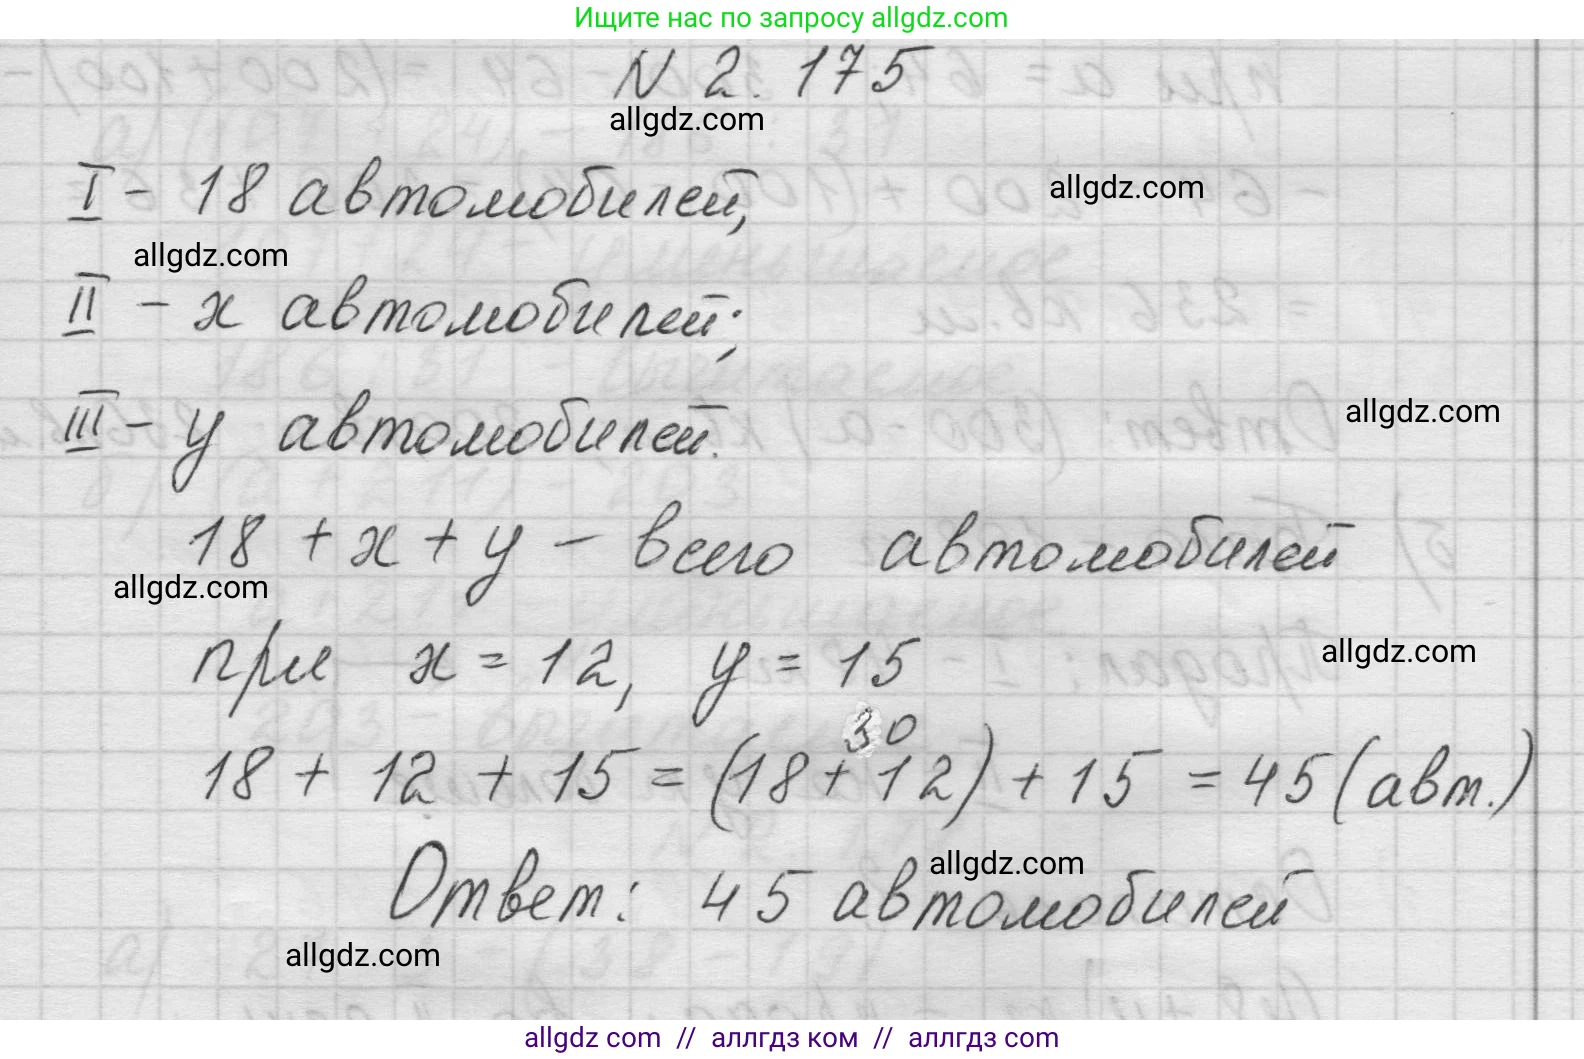 Ищите нас по запросу allgdz.com
N 2. 175
allgdz.com
I - 18 автомобилей,
allgdz.com
allgdz.com
II - х автомобилей;
III - у автомобилей.
allgdz.com
18 + х + у - всего автомобилей
allgdz.com
при х = 12, у = 15
allgdz.com
30
18 + 12 + 15 = (18 + 12) + 15 = 45 (авт.)
allgdz.com
Ответ: 45 автомобилей
allgdz.com
allgdz com // аллгдз ком // аллгдз com